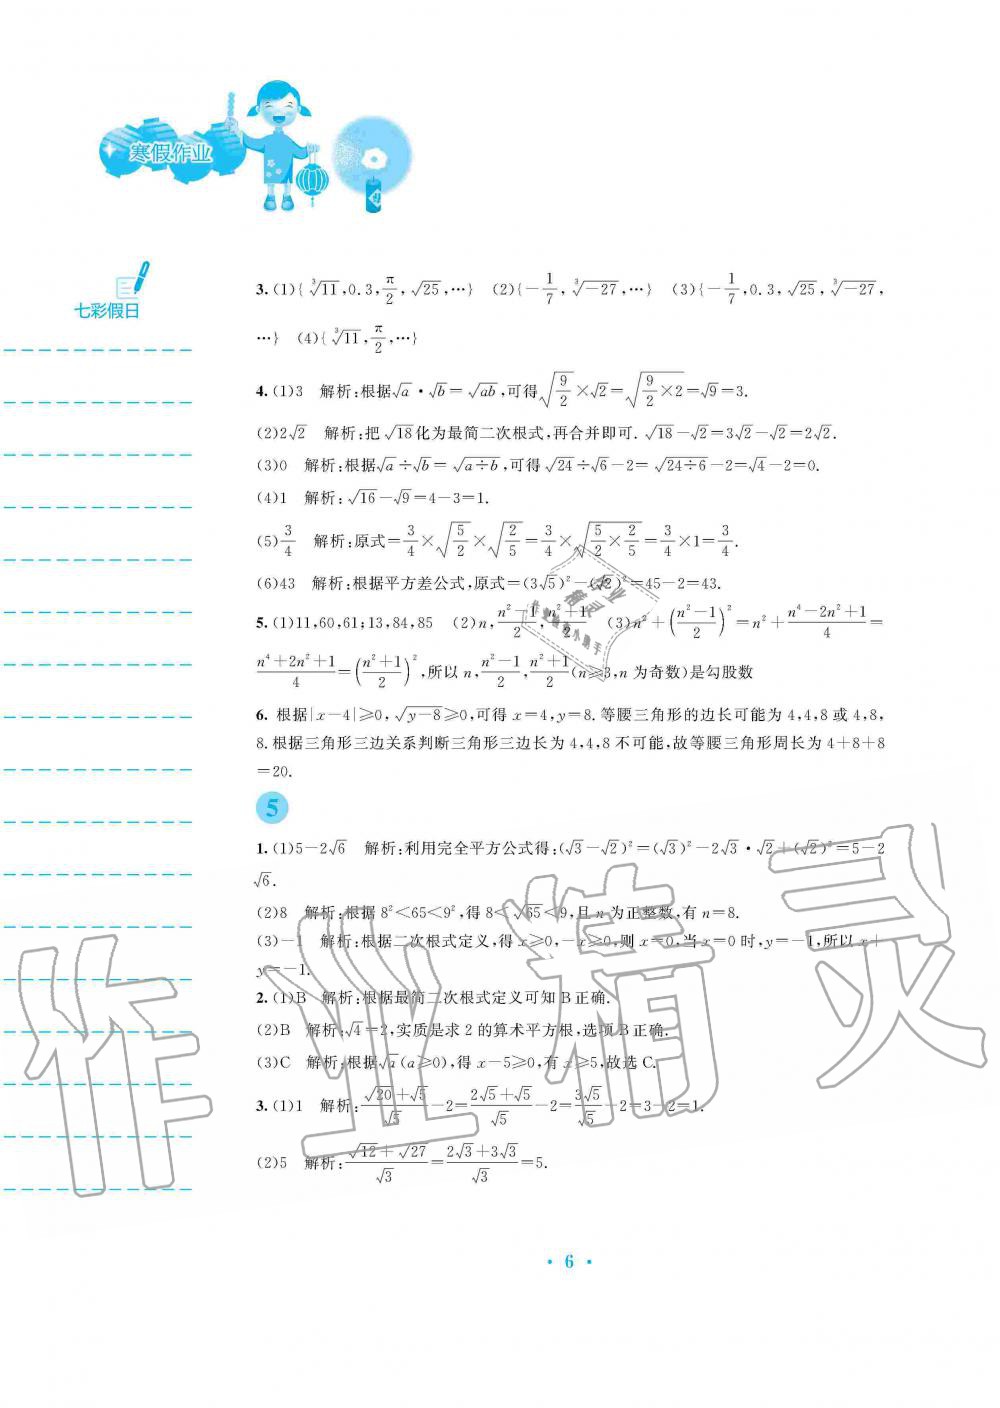 寒假作业
七彩假日
3. (1){∛11,0.3,π/2,√25,…} (2){-1/7,∛-27,…} (3){-1/7,0.3,√25,∛-27,
…} (4){∛11,π/2,…}
4. (1)3 解析:根据√a·√b=√ab,可得√(9/2)×√2=√(9/2×2)=√9=3.
(2)2√2 解析:把√18化为最简二次根式,再合并即可.√18-√2=3√2-√2=2√2.
(3)0 解析:根据√a÷√b=√(a÷b),可得√24÷√6-2=√(24÷6)-2=√4-2=0.
(4)1 解析:√16-√9=4-3=1.
(5)3/4 解析:原式=3/4×√(5/2)×√(2/5)=3/4×√(5/2×2/5)=3/4×1=3/4.
(6)43 解析:根据平方差公式,原式=(3√5)²-(√2)²=45-2=43.
5. (1)11,60,61;13,84,85 (2)n,(n²-1)/2,(n²+1)/2 (3)n²+((n²-1)/2)²=n²+(n⁴-2n²+1)/4=
(n⁴+2n²+1)/4=((n²+1)/2)²,所以n,(n²-1)/2,(n²+1)/2(n≥3,n为奇数)是勾股数
6. 根据|x-4|≥0,√(y-8)≥0,可得x=4,y=8.等腰三角形的边长可能为4,4,8或4,8,
8.根据三角形三边关系判断三角形三边长为4,4,8不可能,故等腰三角形周长为4+8+8
=20.
5
1. (1)5-2√6 解析:利用完全平方公式得:(√3-√2)²=(√3)²-2√3·√2+(√2)²=5-2
√6.
(2)8 解析:根据8²<65<9²,得8<√65<9,且n为正整数,有n=8.
(3)-1 解析:根据二次根式定义,得x≥0,-x≥0,则x=0,当x=0时,y=-1,所以x+
y=-1.
2. (1)B 解析:根据最简二次根式定义可知B正确.
(2)B 解析:√4=2,实质是求2的算术平方根,选项B正确.
(3)C 解析:根据√a(a≥0),得x-5≥0,有x≥5,故选C.
3. (1)1 解析:(√20+√5)/√5-2=(2√5+√5)/√5-2=3√5/√5-2=3-2=1.
(2)5 解析:(√12+√27)/√3=(2√3+3√3)/√3=5.
· 6 ·
作业精灵